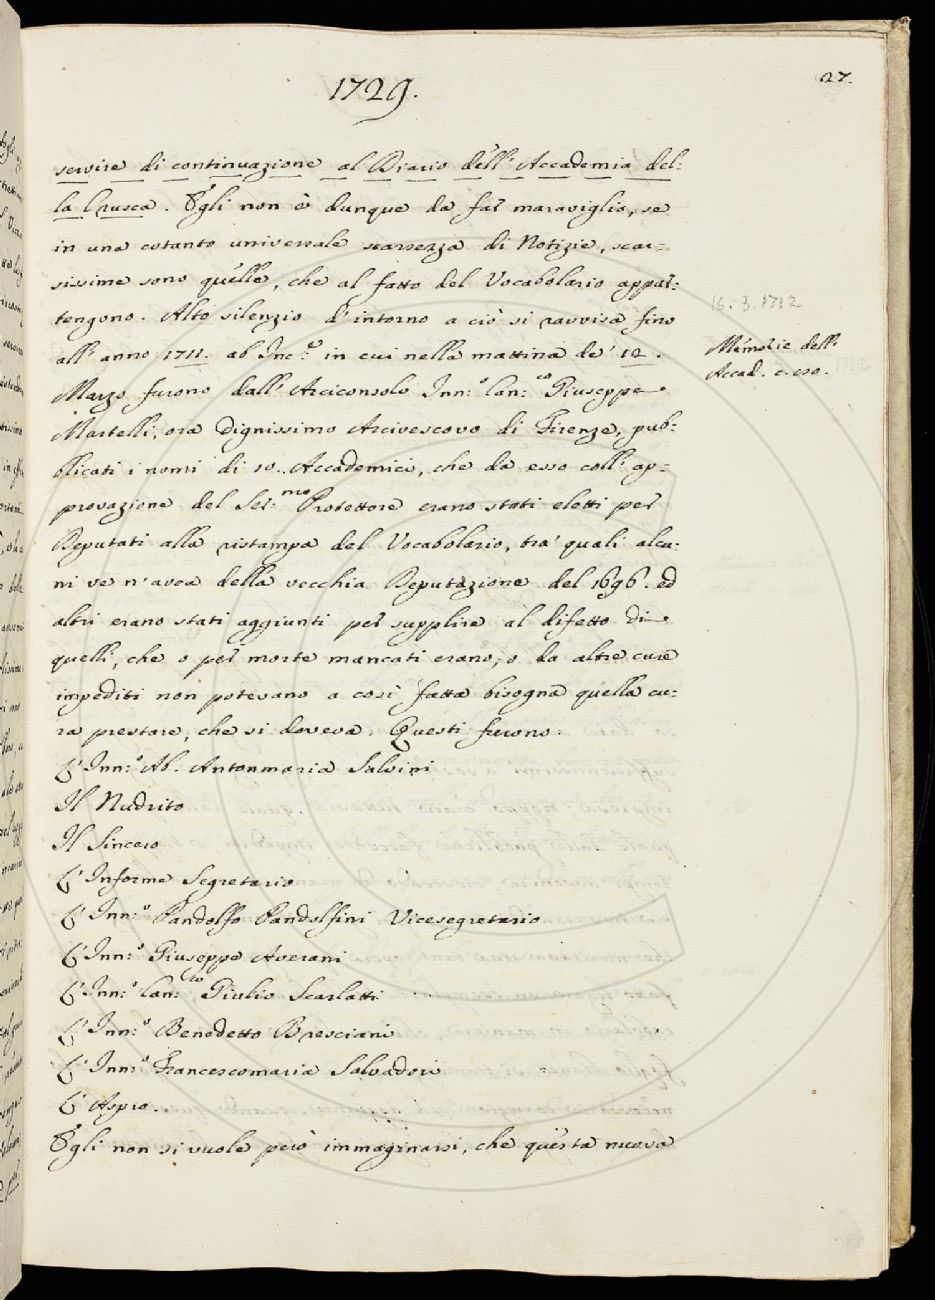 1729.
27.
servire di continuazione al Diario dell' Accademia del=
la Crusca. Egli non è dunque da far maraviglia, se
in una cotanto universale scarsezza di Notizie, scar=
sissime sono quelle, che al fatto del Vocabolario appar=
tengono. Alto silenzio d'intorno a ciò si ravvisa fino
all' anno 1711. ab Inc:e in cui nella mattina de' 12.
Marzo furono dall' Arciconsolo Inn:o Can:co Giuseppe
Martelli, ora dignissimo Arcivescovo di Firenze, pub=
blicati i nomi di 10. Accademici, che da esso coll' ap=
provazione del Ser:mo Protettore erano stati eletti per
Deputati alla ristampa del Vocabolario, tra' quali alcu=
ni ve n'avea della vecchia Deputazione del 1696. ed
altri erano stati aggiunti per supplire al difetto di
quelli, che o per morte mancati erano, o da altre cure
impediti non potevano a così fatta bisogna quella cu=
ra prestare, che si doveva. Questi furono.
L'Inn:o Ab. Antonmaria Salvini
Il Nudrito
Il Sincero
L'Informe Segretario
L'Inn:o Pandolfo Pandolfini Vicesegretario
L'Inn:o Giuseppe Averani
L'Inn:o Can:co Giulio Scarlatti
L'Inn:o Benedetto Bresciani
L'Inn:o Francescomaria Salvadori
L'Aspro.
Egli non si vuole però immaginarsi, che questa nuova
16. 3. 1712
Memorie dell'
Accad. c. 130.